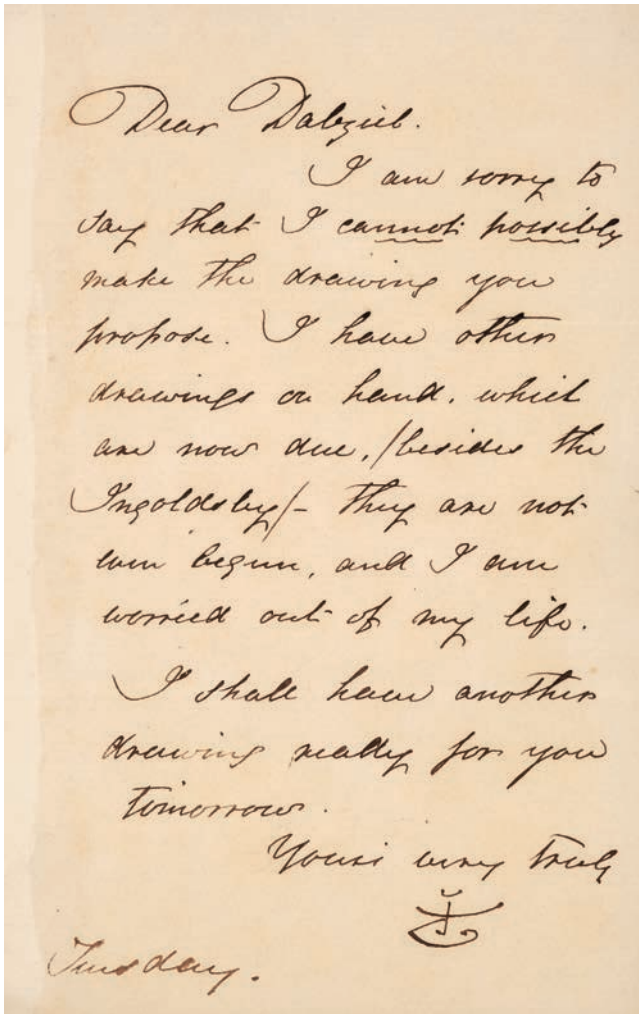 Dear Dalziel.
I am sorry to
say that I cannot possibly
make the drawing you
propose. I have other
drawings on hand, which
are now due, /besides the
Ingoldsby/ - they are not
even begun, and I am
worried out of my life.
I shall have another
drawing ready for you
tomorrow.
Yours very truly
JT
Tuesday.